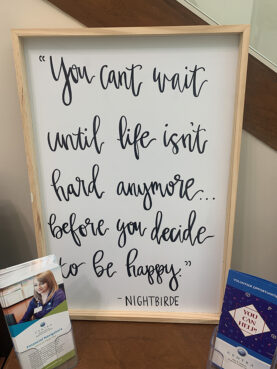 “You cant wait
until life isn't
hard anymore...
before you decide
to be happy.”
- NIGHTBIRDE
VOLUNTEER OPPORTUNITIES
YOU CAN
HELP!
CENTRA